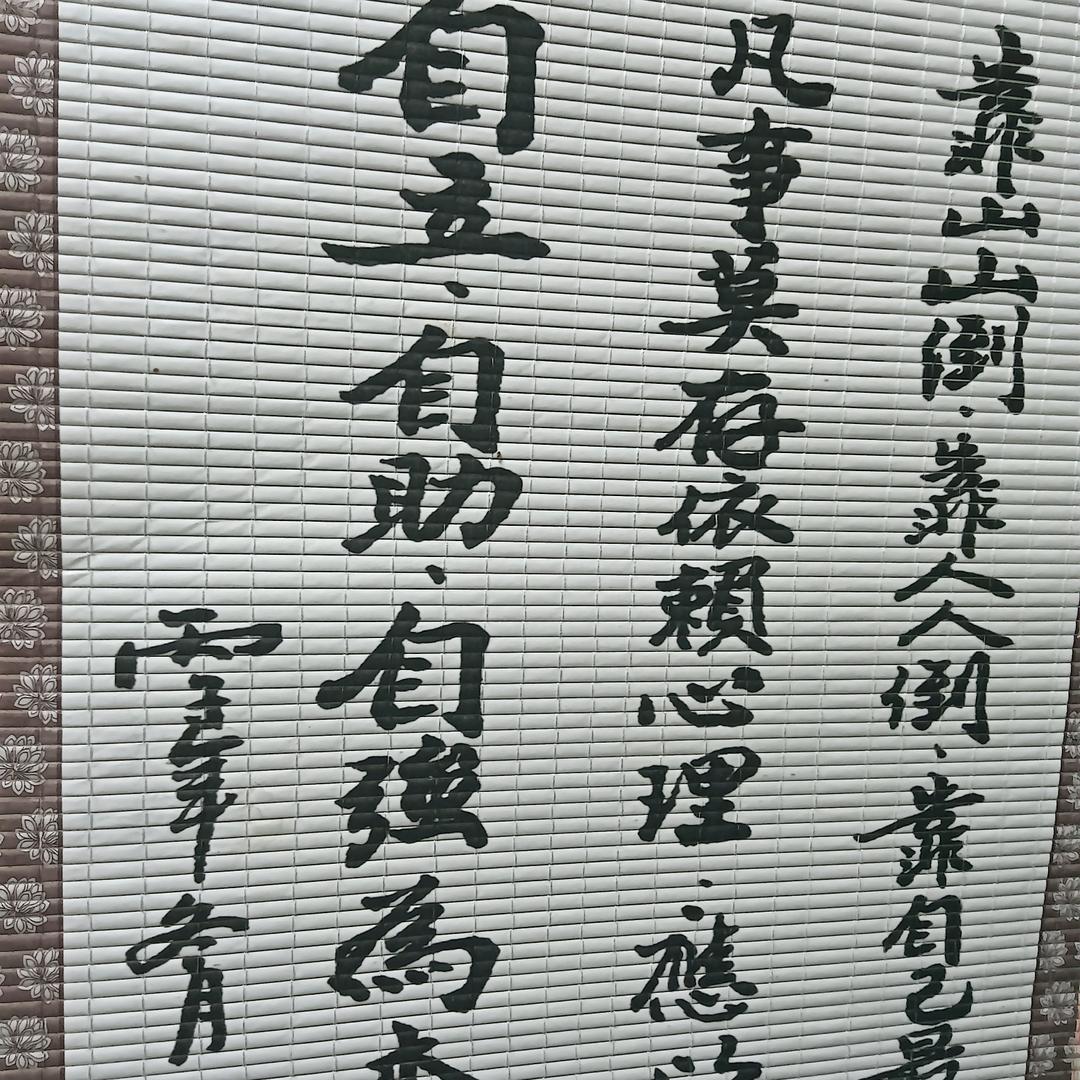 靠山山倒.靠人人倒.靠自己最
凡事莫存依賴心理.應
自立.自助.自強為
年冬月